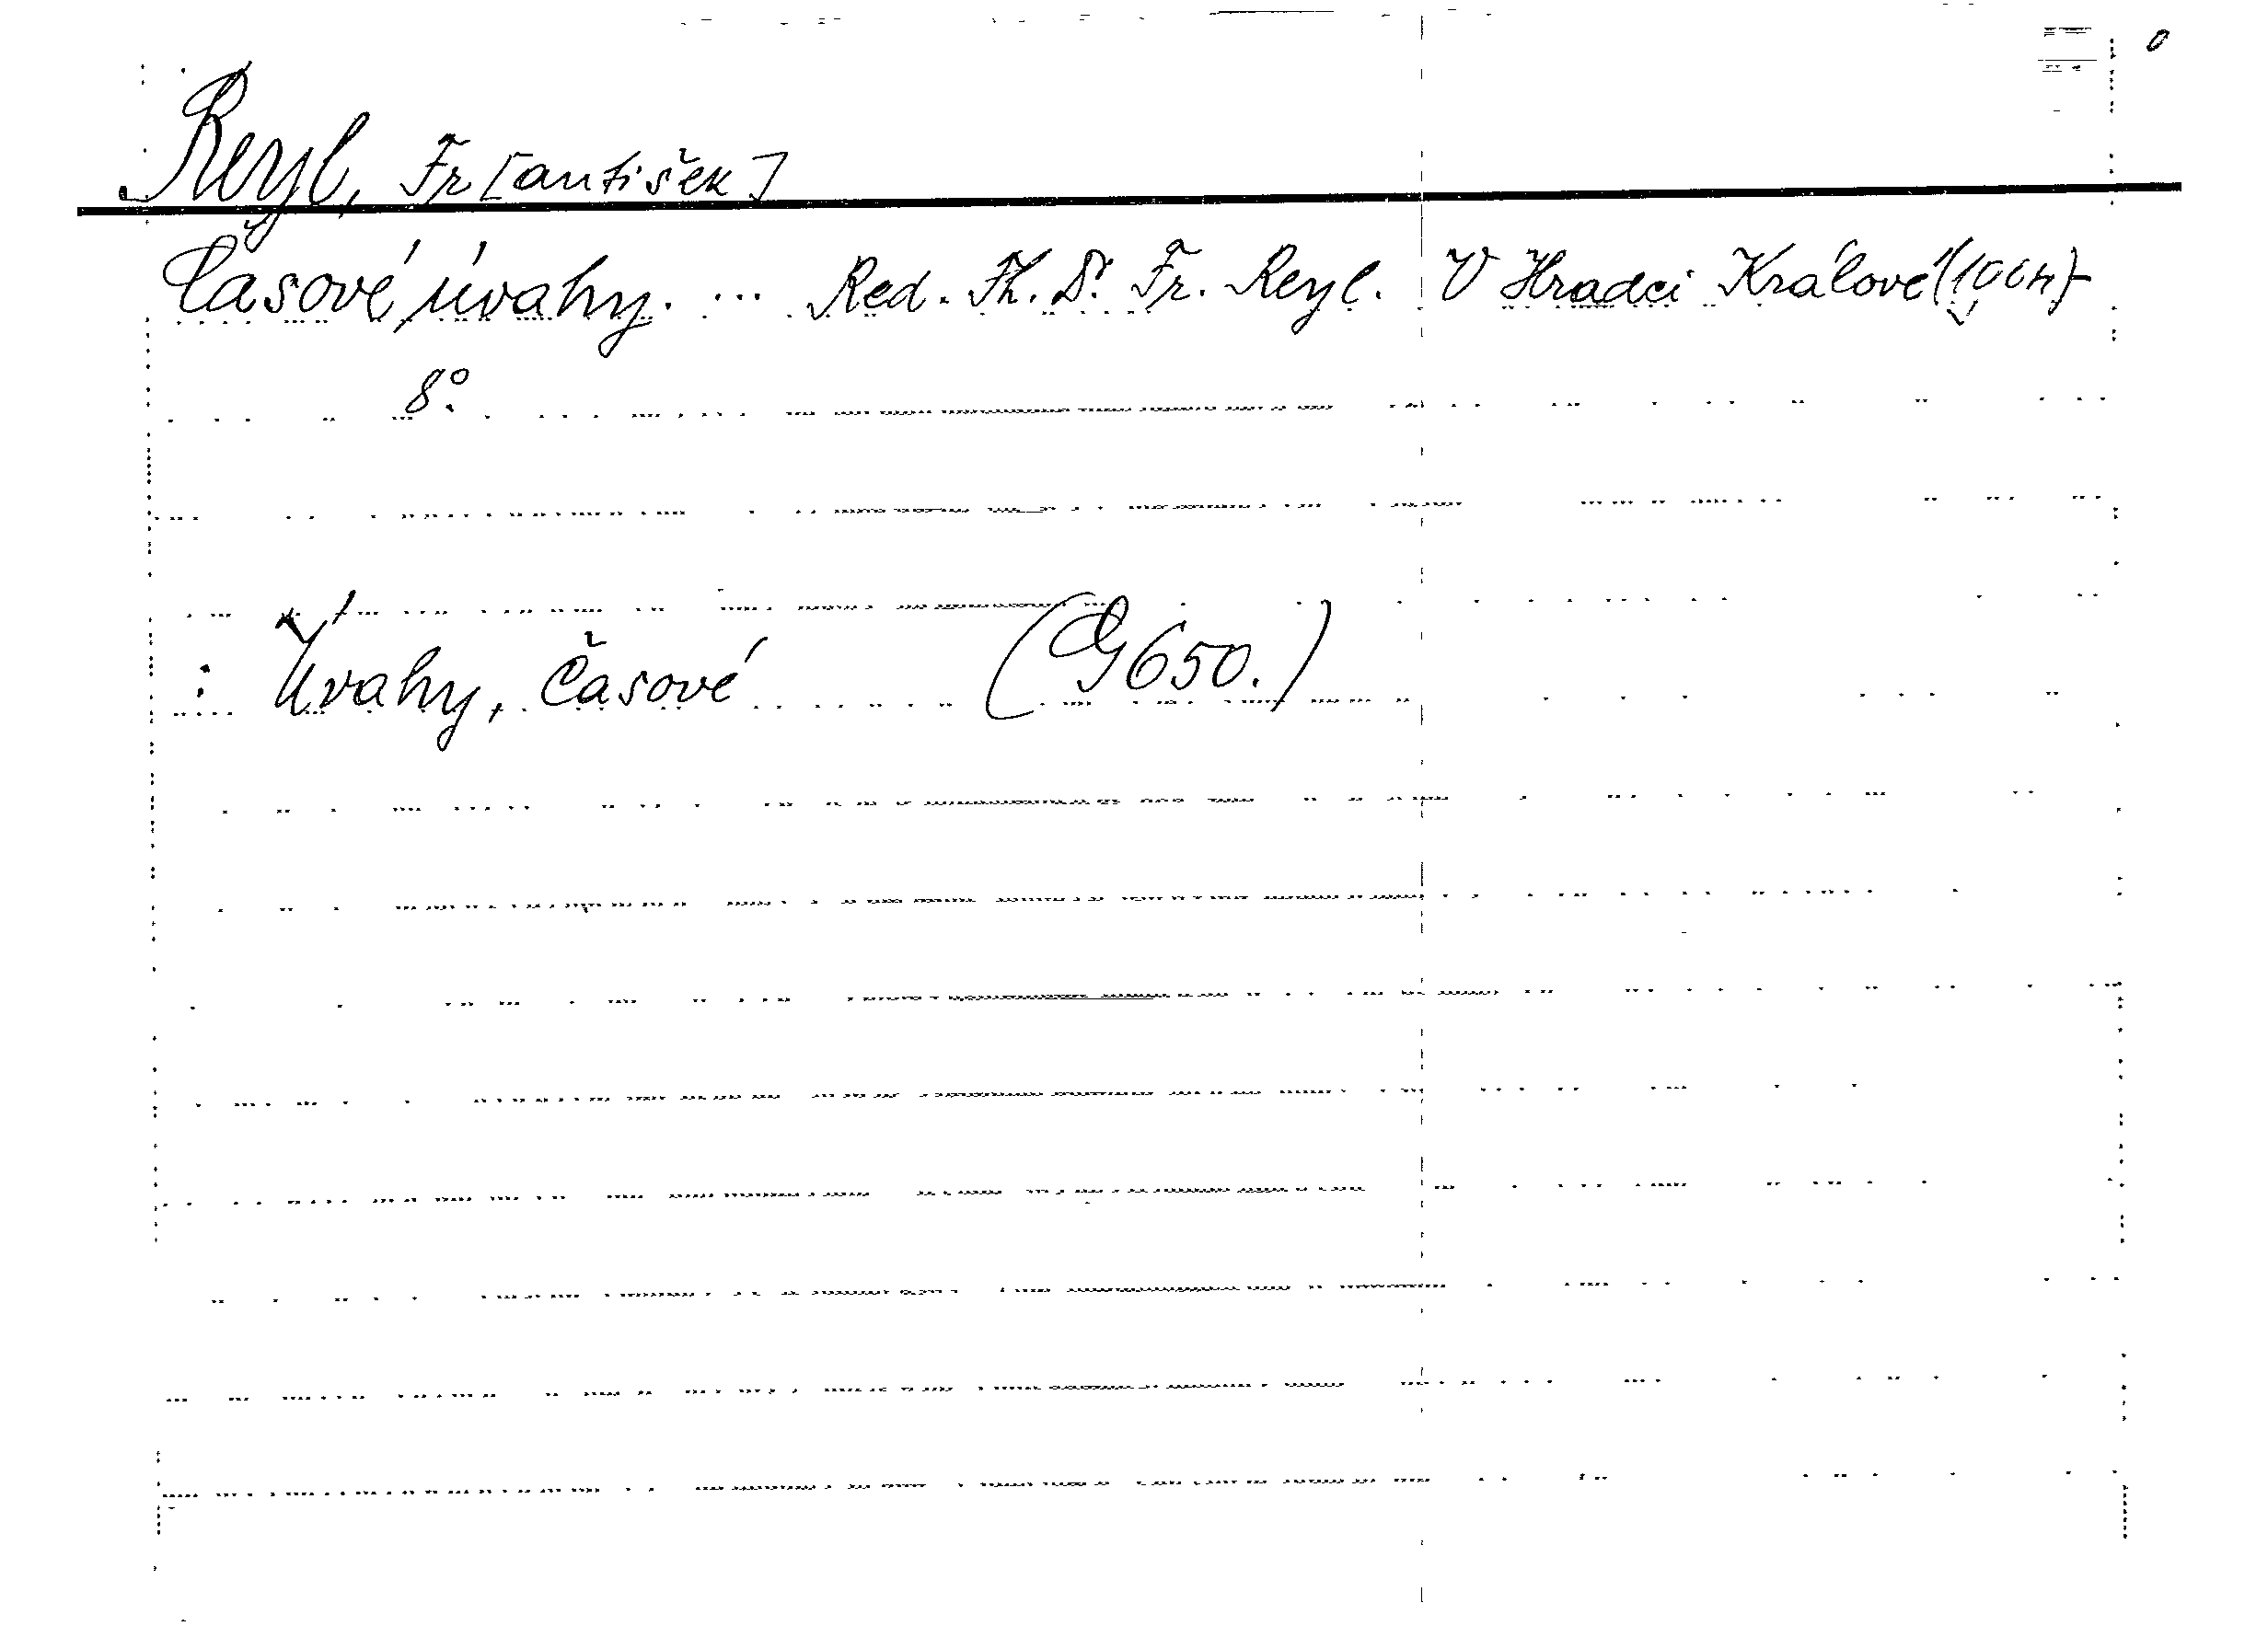 Reyl, Fr[antišek]
Časové úvahy. ... Red. Th. Dr. Fr. Reyl. V Hradci Králové
8°.
: Úvahy, Časové (G 650.)